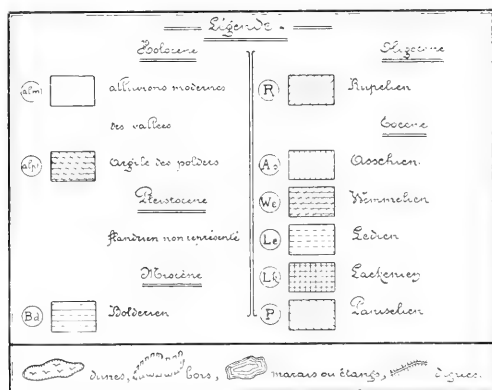 Légende
Holocene
alm
alluvions modernes
des vallées
alp
argile des polders
Pleistocene
flandrien non représenté
Miocène
Bd
Bolderien
Oligocene
R
Rupelien
Eocene
As
Asschien
We
Wemmelien
Le
Ledien
Lk
Laekenien
P
Paniselien
dunes, bois, marais ou étangs, digues.